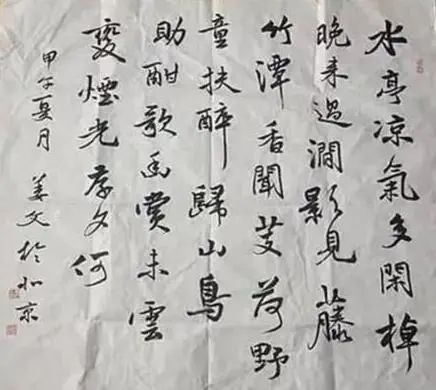 水亭涼氣多閑棹
晚来過澗影見藤
竹潭香聞芰荷野
童扶醉歸山鳥
助酣歌幽賞未雲
煙光奈夕何
甲午夏月 姜文於北京